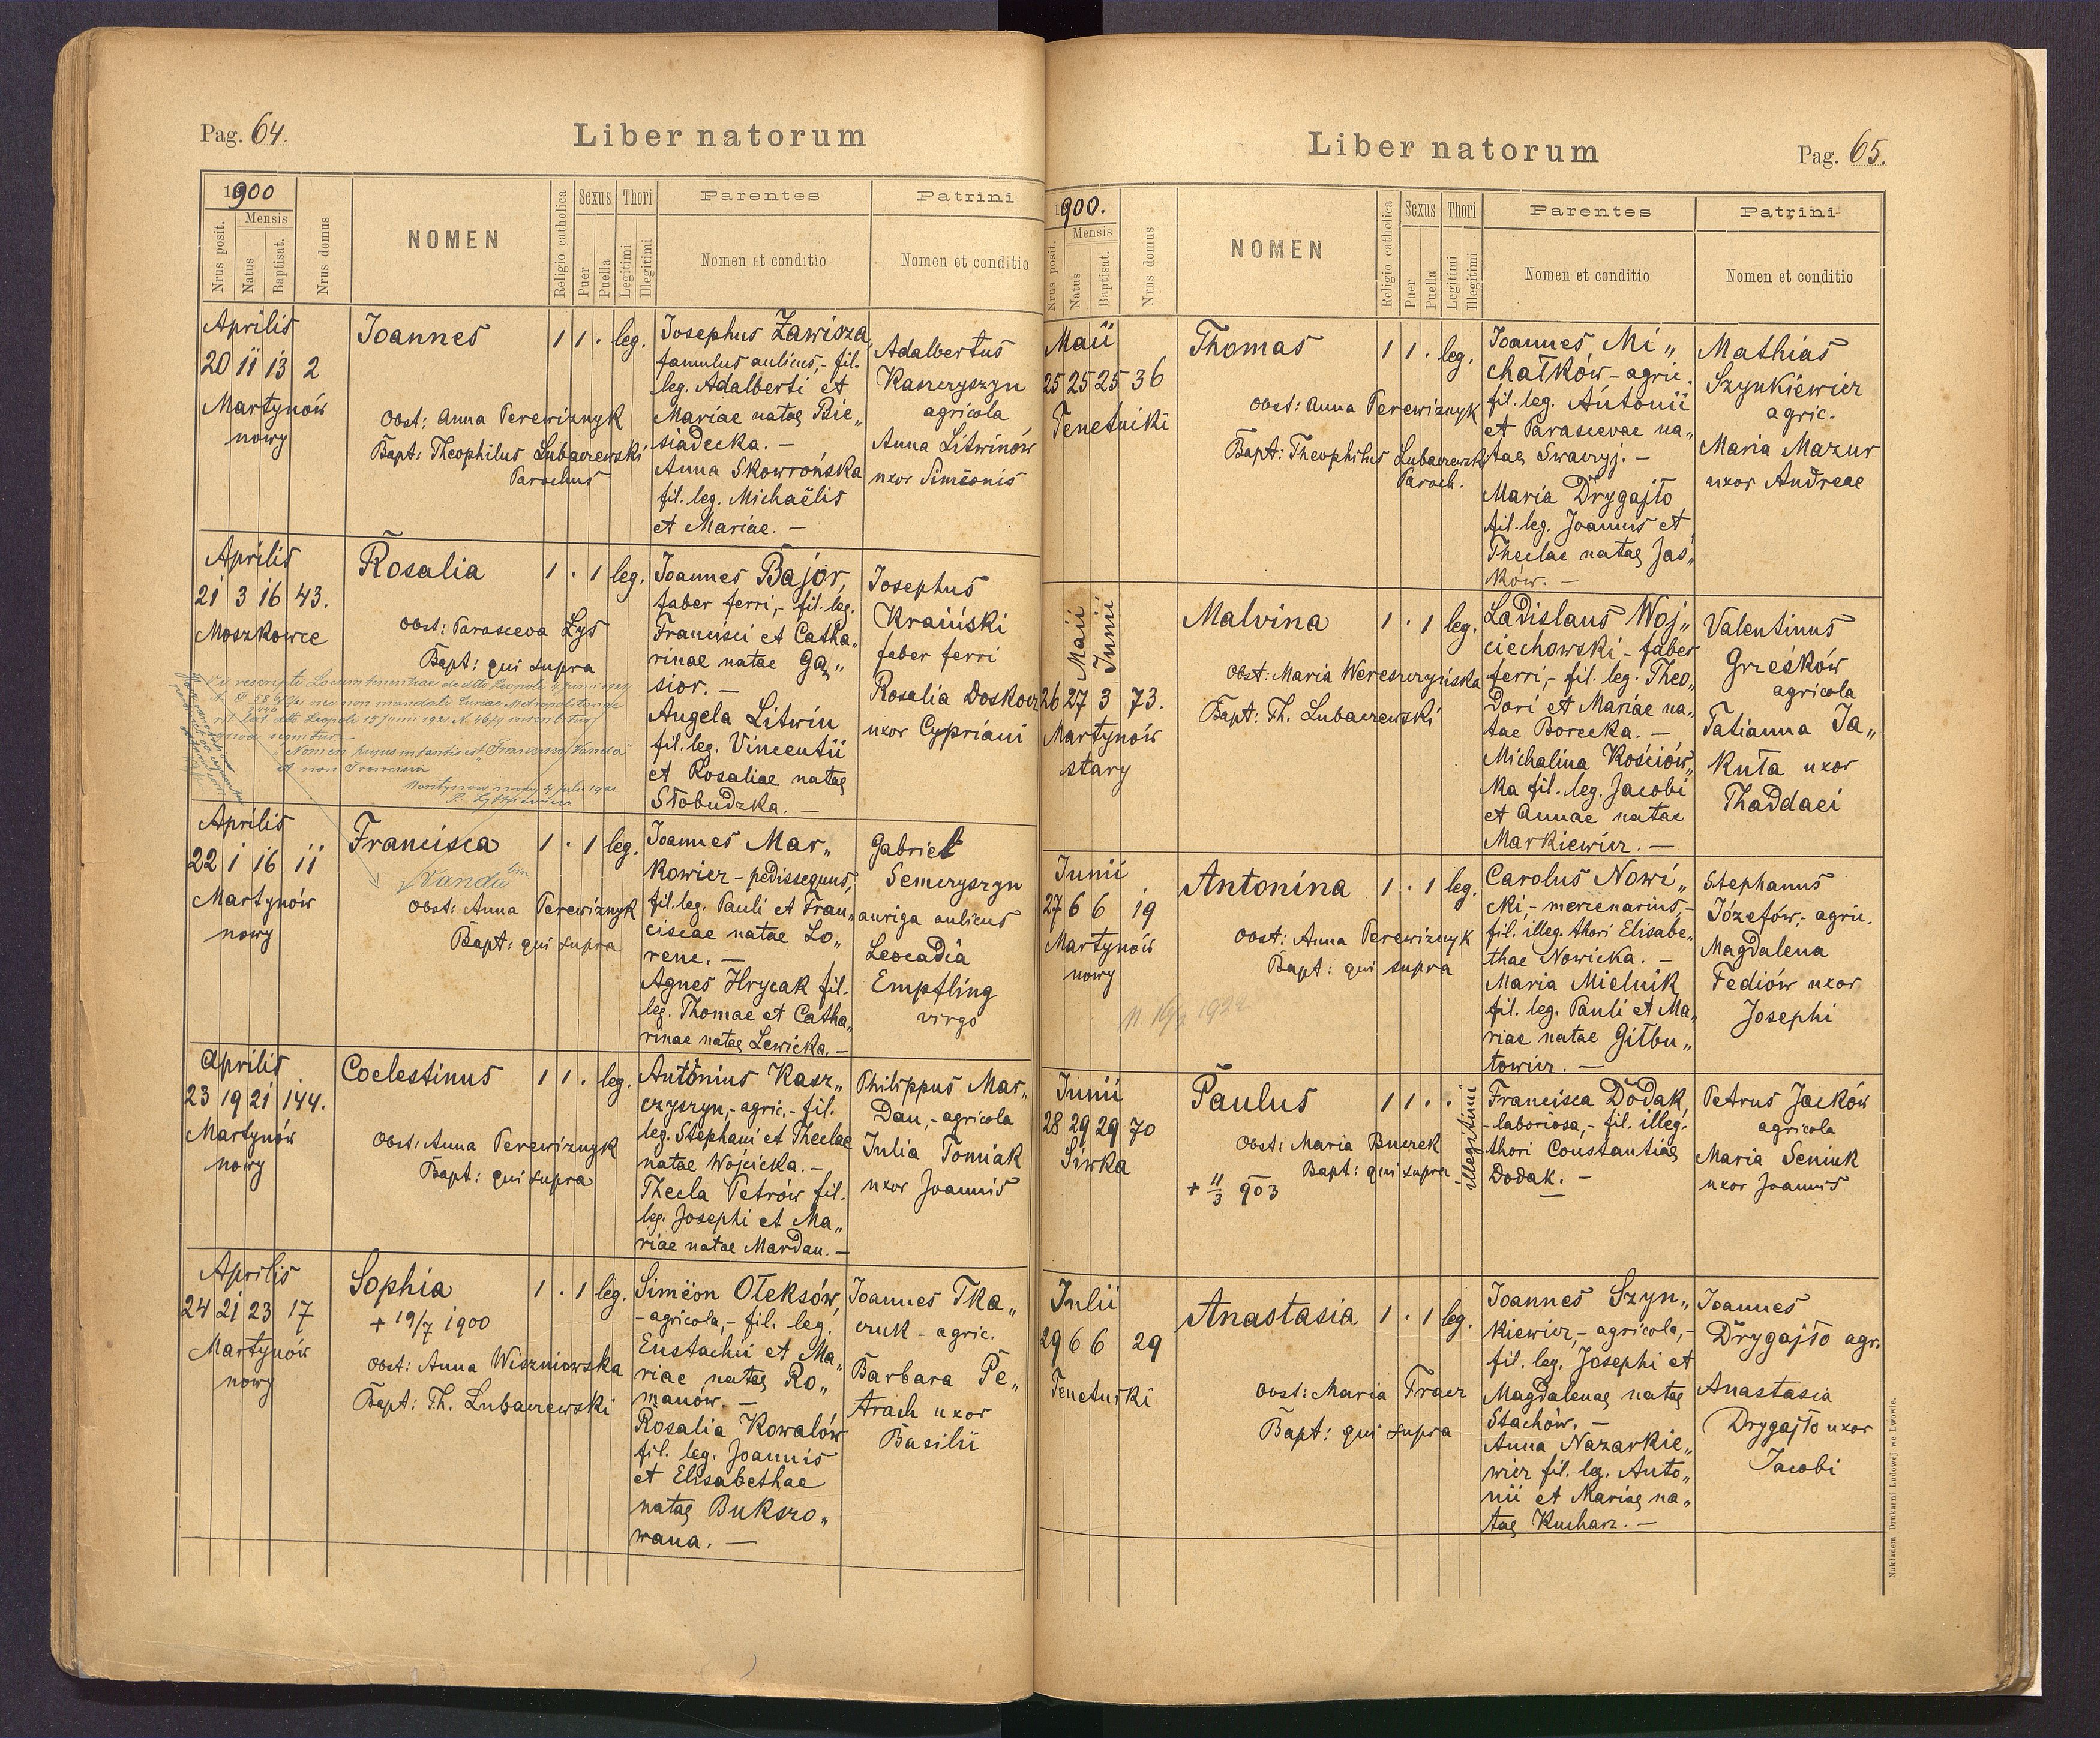 Pag. 64.
Liber natorum
1900
Nrus posit.
Mensis
Natus
Baptisat.
Nrus domus
NOMEN
Religio catholica
Sexus
Puer
Puella
Thori
Legitimi
Illegitimi
Parentes
Nomen et conditio
Patrini
Nomen et conditio
Aprilis
20 11 13 2
Martynów
nowy
Joannes
1 1 . leg.
Obst: Anna Perewiznyk
Bapt: Theophilus Lubaczewski
Parochus
Josephus Zawisza,
famulus aulicus,- fil.
leg. Adalberti et
Mariae natae Bie„
siadecka. —
Anna Skowrońska
fil. leg. Michaëlis
et Mariae. —
Adalbertus
Kaszczyszyn
agricola
Anna Litwinów
uxor Simëonis
Aprilis
21 3 16 43.
Moszkowce
Rosalia
1 . 1 leg.
Obst: Parasceva Lys
Bapt: qui supra
Joannes Bajor,
faber ferri,- fil. leg.
Francisci et Catha„
rinae natae Gą„
sior. —
Angela Litwin
fil. leg. Vincentii
et Rosaliae natae
Słobudzka. —
Josephus
Kraiński
faber ferri
Rosalia Doskocz
uxor Cypriani
Nomen hujus infantis est „Francisca Vanda"
et non Francisca
Aprilis
22 1 16 11
Martynów
nowy
Francisca
Vanda
1 . 1 leg.
Obst: Anna Perewiznyk
Bapt: qui supra
Joannes Mar„
kowicz - pedissequus,
fil. leg. Pauli et Fran„
ciscae natae Lo„
renc. —
Agnes Hrycak fil.
leg. Thomae et Catha„
rinae natae Lewicka. —
Gabriel
Semczyszyn
auriga aulicus
Leocadia
Empfling
virgo
Aprilis
23 19 21 144.
Martynów
nowy
Coelestinus
1 1 . leg.
Obst: Anna Perewiznyk
Bapt: qui supra
Antonius Kasz„
czyszyn,- agric,- fil.
leg. Stephani et Theclae
natae Wojcicka. —
Thecla Petrów fil.
leg. Josephi et Ma„
riae natae Mardan. —
Philippus Mar„
dan,- agricola
Julia Tomiak
uxor Joannis
Aprilis
24 21 23 17
Martynów
nowy
Sophia
+ 19/7 1900
1 . 1 leg.
Obst: Anna Wiszniowska
Bapt: Th. Lubaczewski
Simëon Oleksów,
- agricola,- fil. leg.
Eustachii et Ma„
riae natae Ro„
manów. —
Rosalia Kowalów
fil. leg. Joannis
et Elisabethae
natae Bukszo„
wana. —
Joannes Tka„
czuk - agric.
Barbara Pe„
trach uxor
Basilii
Liber natorum
Pag. 65.
1900.
Nrus posit.
Mensis
Natus
Baptisat.
Nrus domus
NOMEN
Religio catholica
Sexus
Puer
Puella
Thori
Legitimi
Illegitimi
Parentes
Nomen et conditio
Patrini
Nomen et conditio
Maii
25 25 25 36
Tenetniki
Thomas
1 1 . leg.
Obst: Anna Perewiznyk
Bapt: Theophilus Lubaczewski
Paroch.
Joannes Mi„
chałków - agric.
fil. leg. Antonii
et Parascevae na„
tae Swaryj. —
Maria Drygajło
fil. leg. Joannis et
Theclae natae Jaś„
ków. —
Mathias
Szynkiewicz
agric.
Maria Mazur
uxor Andreae
Maii
Junii
26 27 3 73.
Martynów
stary
Malvina
1 . 1 leg.
Obst: Maria Wereszczyńska
Bapt: Th. Lubaczewski
Ladislaus Woj„
ciechowski - faber
ferri,- fil. leg. Theo„
dori et Mariae na„
tae Borecka. —
Michalina Kościów„
ka fil. leg. Jacobi
et Annae natae
Markiewicz. —
Valentinus
Greśków
agricola
Tatianna Ja„
kuta uxor
Thaddaei
Junii
27 6 6 19
Martynów
nowy
Antonina
1 . 1 leg.
Obst: Anna Perewiznyk
Bapt: qui supra
1922
Carolus Nowi„
cki,- mercenarius,-
fil. illeg. thori Elisabe„
thae Nowicka. —
Maria Mielnik
fil. leg. Pauli et Ma„
riae natae Giłbu„
towicz. —
Stephanus
Józefów,- agric.
Magdalena
Fediów uxor
Josephi
Junii
28 29 29 70
Siwka
Paulus
1 1 . . illegitimi
Obst: Maria Buczek
Bapt: qui supra
+ 11/3 903
Francisca Dodak,
- laboriosa,- fil. illeg.
thori Constantiae
Dodak. —
Petrus Jacków
agricola
Maria Seniuk
uxor Joannis
Julii
29 6 6 29
Tenetniki
Anastasia
1 . 1 leg.
Obst: Maria Tracz
Bapt: qui supra
Joannes Szyn„
kiewicz,- agricola,-
fil. leg. Josephi et
Magdalenae natae
Stachów. —
Anna Nazarkie„
wicz fil. leg. Anto„
nii et Mariae na„
tae Kucharz. —
Joannes
Drygajło agr.
Anastasia
Drygajło uxor
Jacobi
Nakładem Drukarni Ludowej we Lwowie.